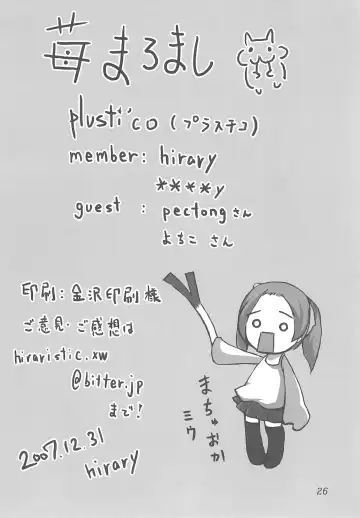 苺まろまし
plusti'co (プラスチコ)
member: hirary
****y
guest : pectongさん
よちこ さん
印刷:金沢印刷様
ご意見・ご感想は
hiraristic.xw
@bitter.jp
まで!
2007.12.31
hirary
まちゅおか
ミウ
26